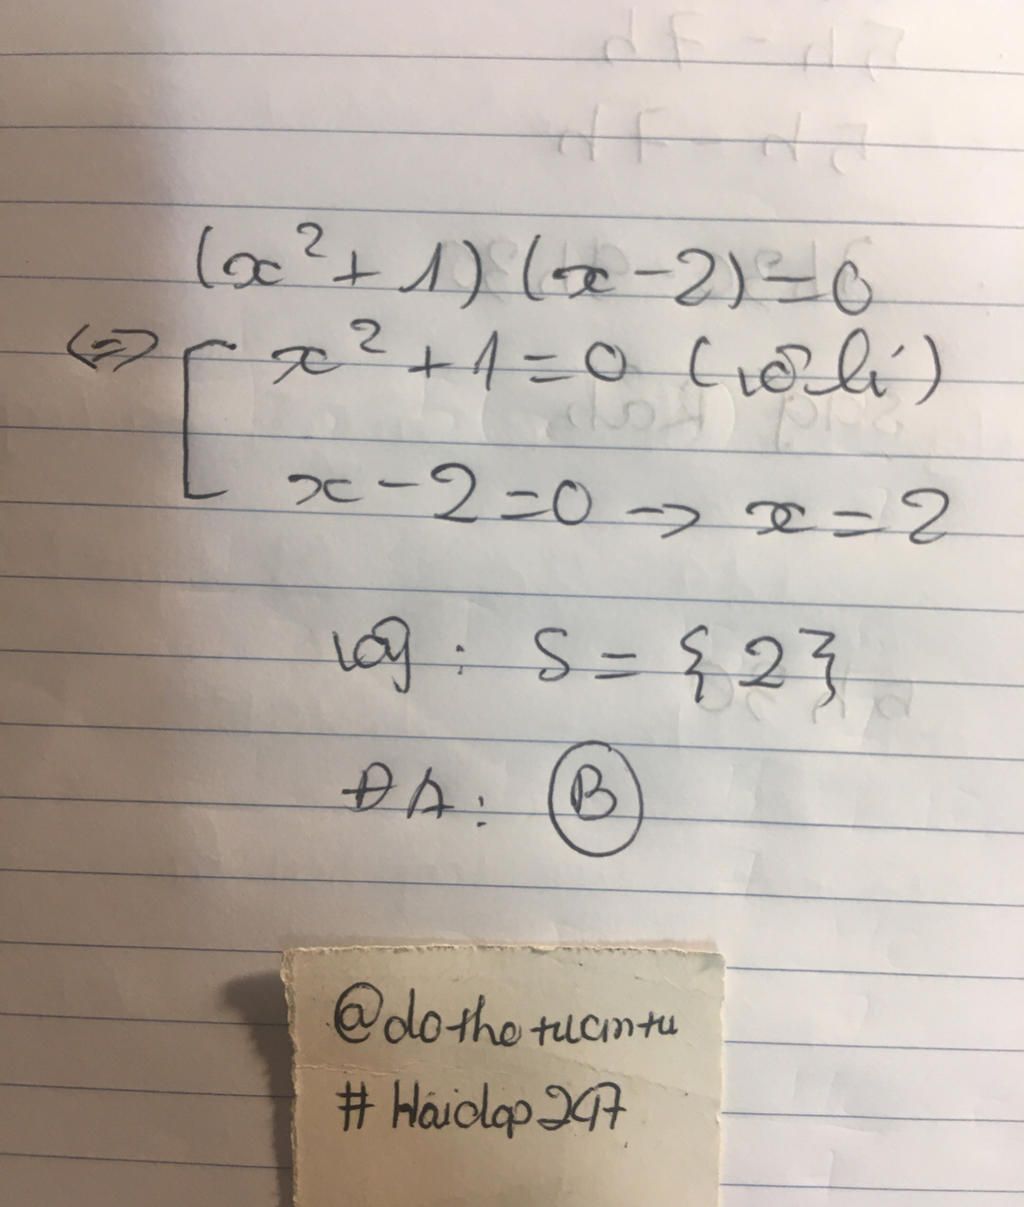 (x² + 1) (x - 2) = 0
⇔ [ x² + 1 = 0 (vô lí)
x - 2 = 0 → x = 2
Vậy : S = { 2 }
ĐA : B
@dothetuantu
# Hoidap247